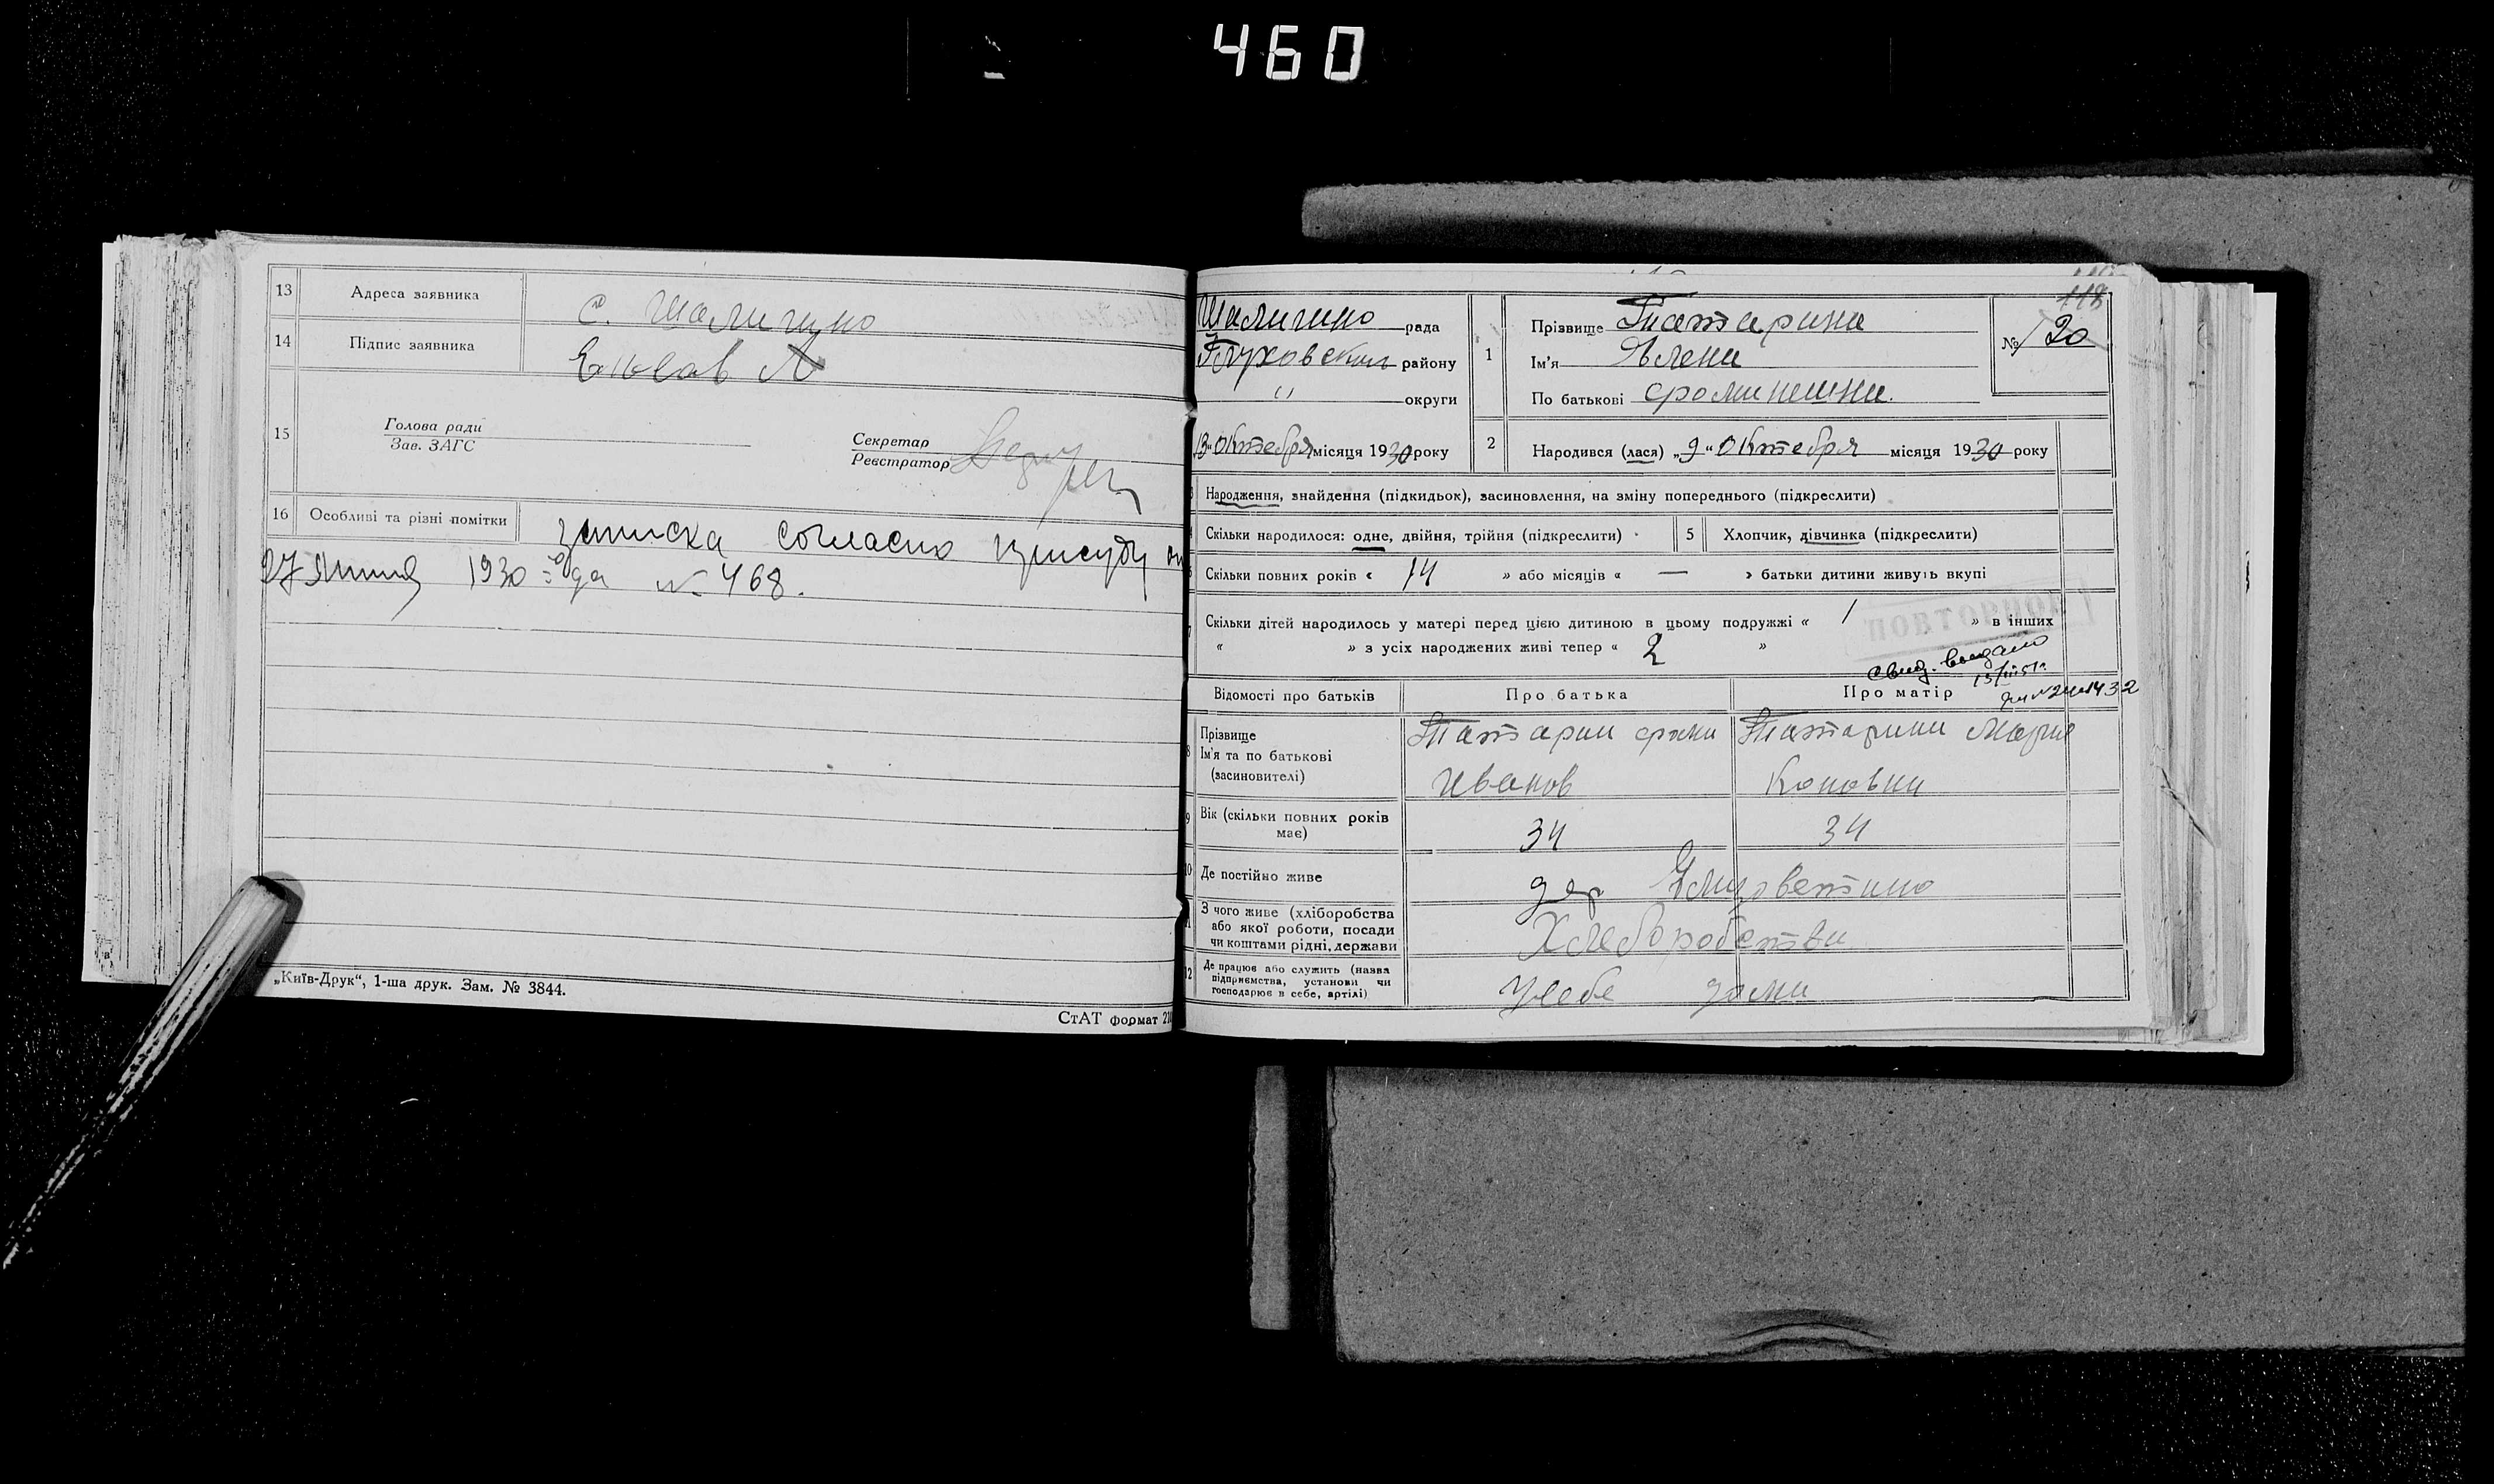 460
13 Адреса заявника с. Шалигино
14 Підпис заявника
15 Голова ради
Зав. ЗАГС
Секретар
Реєстратор
16 Особливі та різні помітки записка согласно
27 1930 года № 468.
„Київ-Друк“, 1-ша друк. Зам. № 3844.
СтАТ формат
118
Шалигино рада
Глуховского району
" округи
13 „Октебря місяця 1930 року
1 Прізвище Татарина
Ім'я Ялена
По батькові
№ 120
2 Народився (лася) „9“ Октебря місяця 1930 року
Народження, знайдення (підкидьок), засиновлення, на зміну попереднього (підкреслити)
Скільки народилося: одне, двійня, трійня (підкреслити)
5 Хлопчик, дівчинка (підкреслити)
Скільки повних років « 14 » або місяців « — » батьки дитини живуть вкупі
Скільки дітей народилось у матері перед цією дитиною в цьому подружжі « 1 » в інших
« » з усіх народжених живі тепер « 2 »
повторно
свид. выдано
Відомості про батьків
Про батька
Про матір
Прізвище
Ім'я та по батькові
(засиновителі)
Татарин
Иванов
Татарини Мария
9 Вік (скільки повних років
має)
34
34
10 Де постійно живе
дер
З чого живе (хліборобства
або якої роботи, посади
чи коштами рідні, держави
Хлеборобства
12 Де працює або служить (назва
підприємства, установи чи
господарює в себе, артілі)
У себе дома